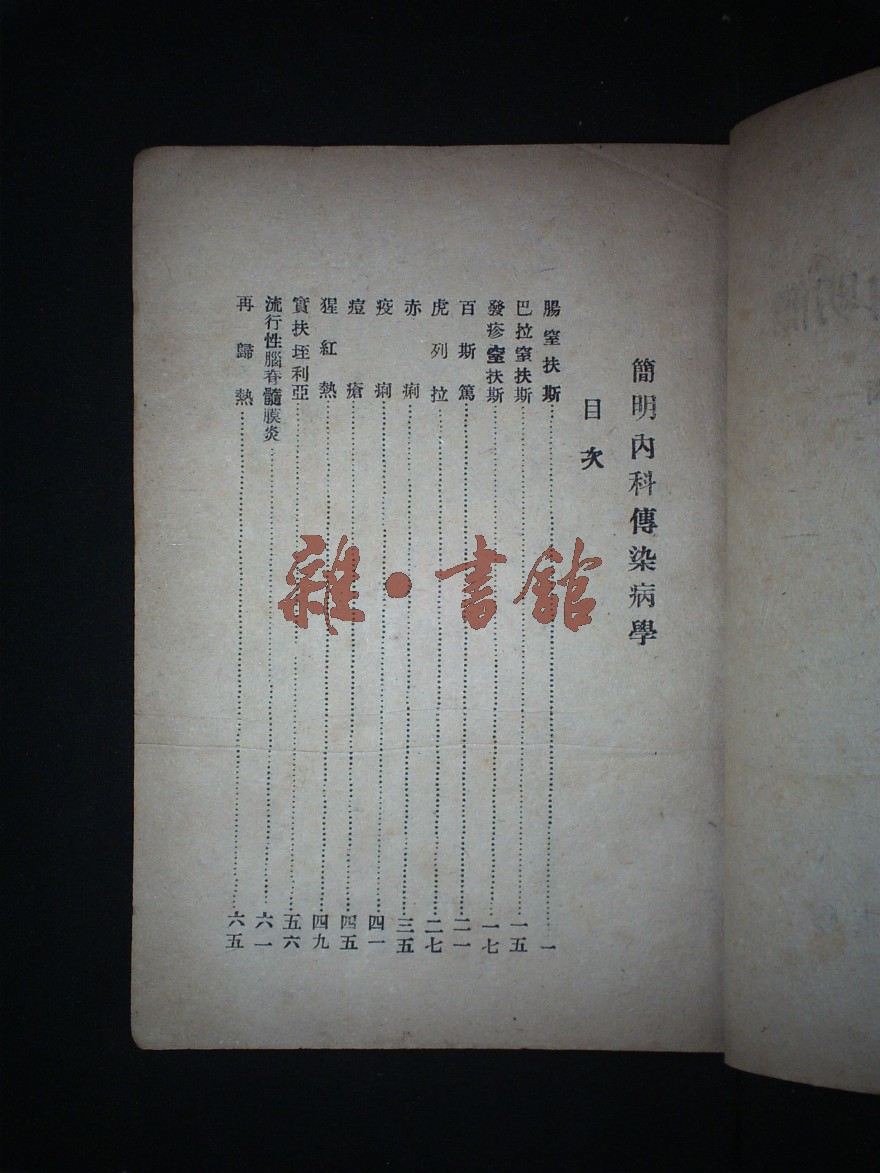 簡明內科傳染病學
目次
腸窒扶斯……一
巴拉窒扶斯……一五
發疹窒扶斯……一七
百斯篤……二一
虎列拉……二七
赤痢……三五
疫痢……四一
痘瘡……四五
猩紅熱……四九
實扶垤利亞……五六
流行性腦脊髓膜炎……六一
再歸熱……六五
雜·書館